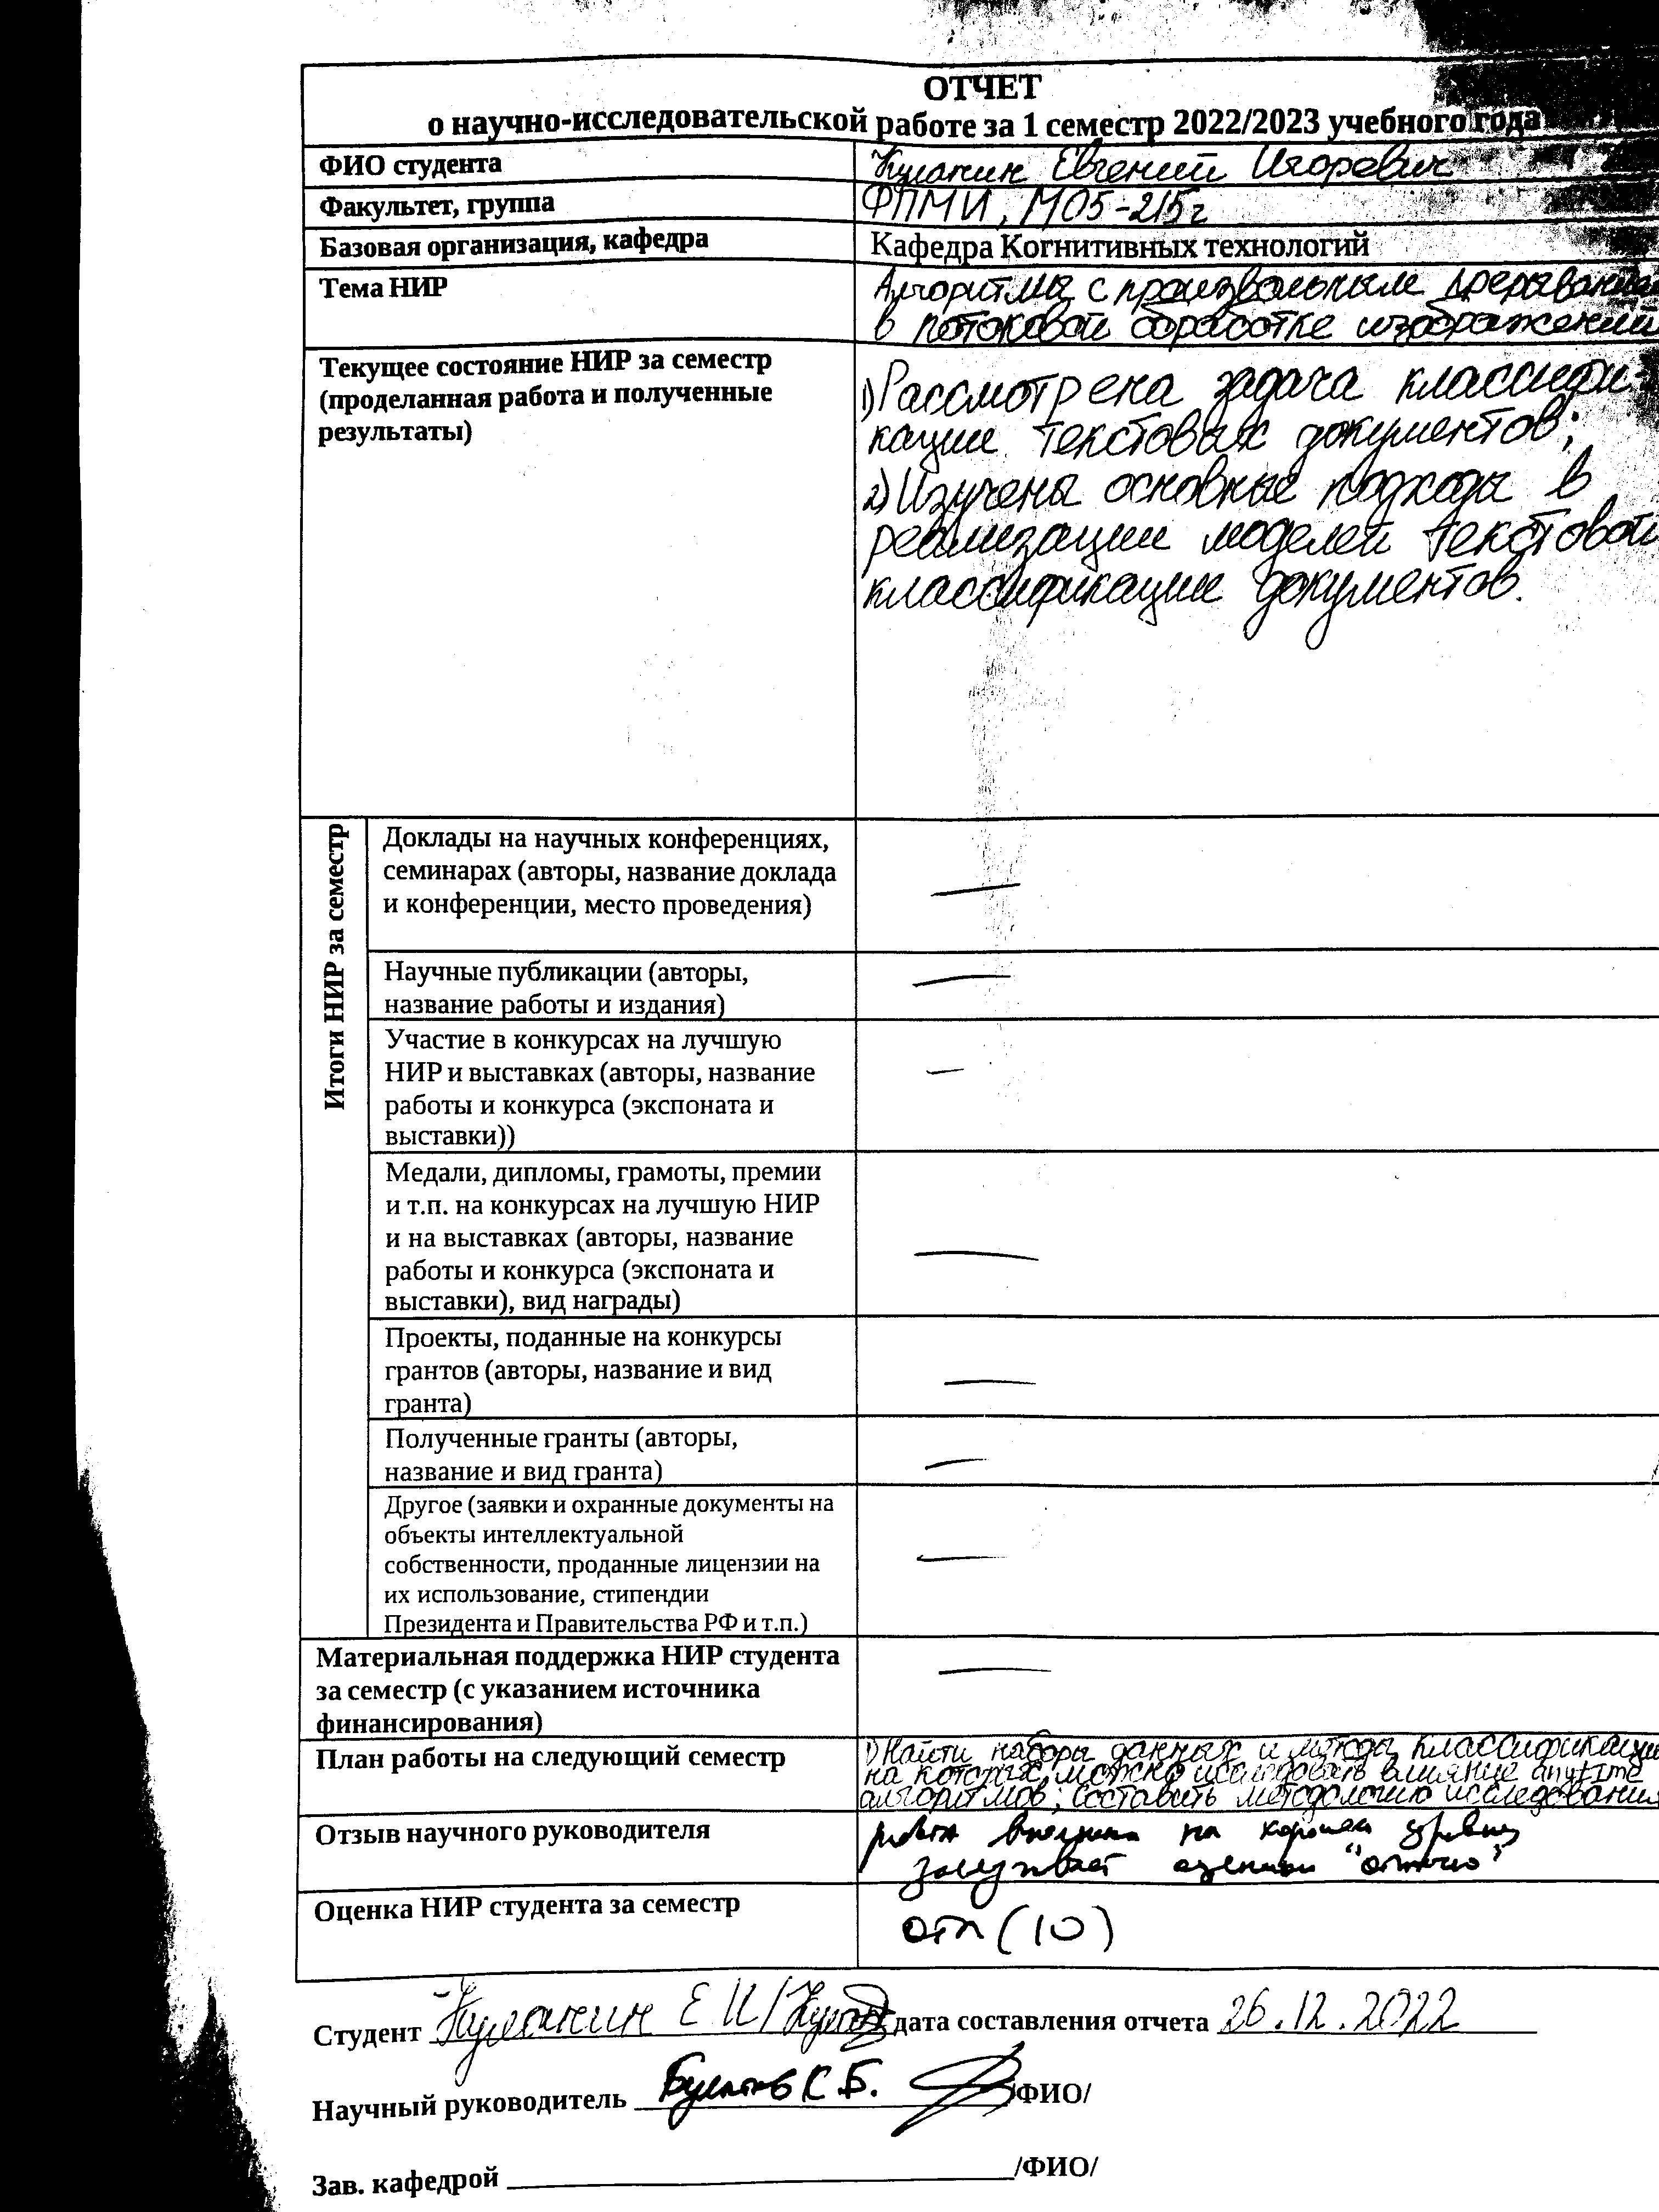 ОТЧЕТ
о научно-исследовательской работе за 1 семестр 2022/2023 учебного года
ФИО студента
Евгений Игоревич
Факультет, группа
ФПМИ, М05-215г
Базовая организация, кафедра
Кафедра Когнитивных технологий
Тема НИР
Алгоритмы с произвольным прерыванием
в потоковой обработке изображений
Текущее состояние НИР за семестр
(проделанная работа и полученные
результаты)
1) Рассмотрена задача классифи-
кации текстовых документов;
2) Изучены основные подходы в
реализации моделей текстовой
классификации документов.
Итоги НИР за семестр
Доклады на научных конференциях,
семинарах (авторы, название доклада
и конференции, место проведения)
—
Научные публикации (авторы,
название работы и издания)
—
Участие в конкурсах на лучшую
НИР и выставках (авторы, название
работы и конкурса (экспоната и
выставки))
—
Медали, дипломы, грамоты, премии
и т.п. на конкурсах на лучшую НИР
и на выставках (авторы, название
работы и конкурса (экспоната и
выставки), вид награды)
—
Проекты, поданные на конкурсы
грантов (авторы, название и вид
гранта)
—
Полученные гранты (авторы,
название и вид гранта)
—
Другое (заявки и охранные документы на
объекты интеллектуальной
собственности, проданные лицензии на
их использование, стипендии
Президента и Правительства РФ и т.п.)
—
Материальная поддержка НИР студента
за семестр (с указанием источника
финансирования)
—
План работы на следующий семестр
1) Найти наборы данных и методы классификации
на которых можно исследовать влияние anytime
алгоритмов; Составить методологию исследования
Отзыв научного руководителя
работа выполнена на хорошем уровне
заслуживает оценки "отлично"
Оценка НИР студента за семестр
отл (10)
Студент Е И / дата составления отчета 26.12.2022
Научный руководитель Булатов К.Б. /ФИО/
Зав. кафедрой /ФИО/